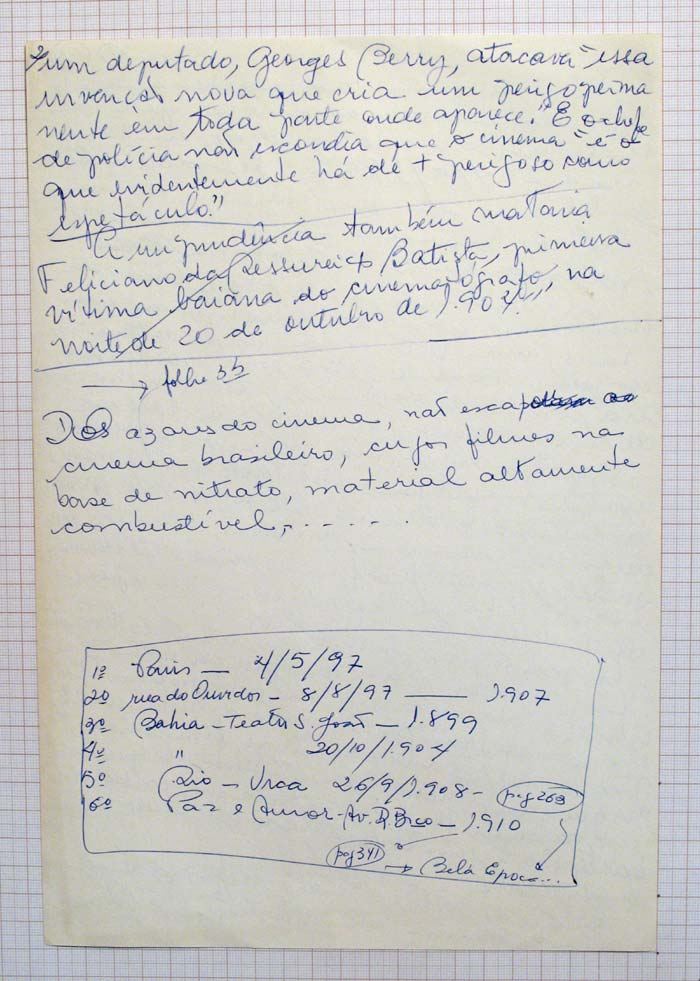 um deputado, Georges Berry, atacava "essa
invenção nova que cria um perigo perma
nente em toda parte onde aparece." E o chefe
de polícia não escondia que o cinema "é o
que evidentemente há de + perigoso como
espetáculo."
A imprudência também mataria
Feliciano da Ressureição Batista, primeira
vítima baiana do cinematógrafo, na
noite de 20 de outubro de 1.904.
→ folha 3b
Dos azares do cinema, não escap
cinema brasileiro, cujos filmes na
base de nitrato, material altamente
combustível, . . . . .
1º Paris — 4/5/97
2º rua do Ouvidor - 8/8/97 — 1.907
3º Bahia - Teatro S. João - 1.899
4º " 20/10/1.904
5º Rio - Urca 26/9/1.908 - pag 269
6º Paz e Amor - Av. R. Bco - 1.910
pag 341 → Bela Epoca...